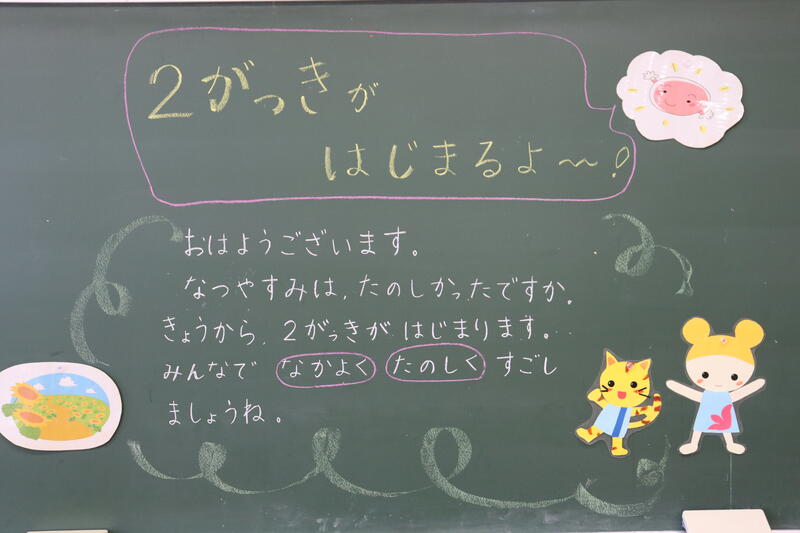 2がっきが
はじまるよ〜!
おはようございます。
なつやすみは、たのしかったですか。
きょうから、2がっきが はじまります。
みんなで なかよく たのしく すごし
ましょうね。